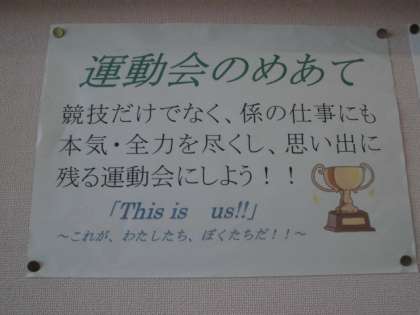 運動会のめあて
競技だけでなく、係の仕事にも
本気・全力を尽くし、思い出に
残る運動会にしよう！！
「This is us!!」
～これが、わたしたち、ぼくたちだ！！～